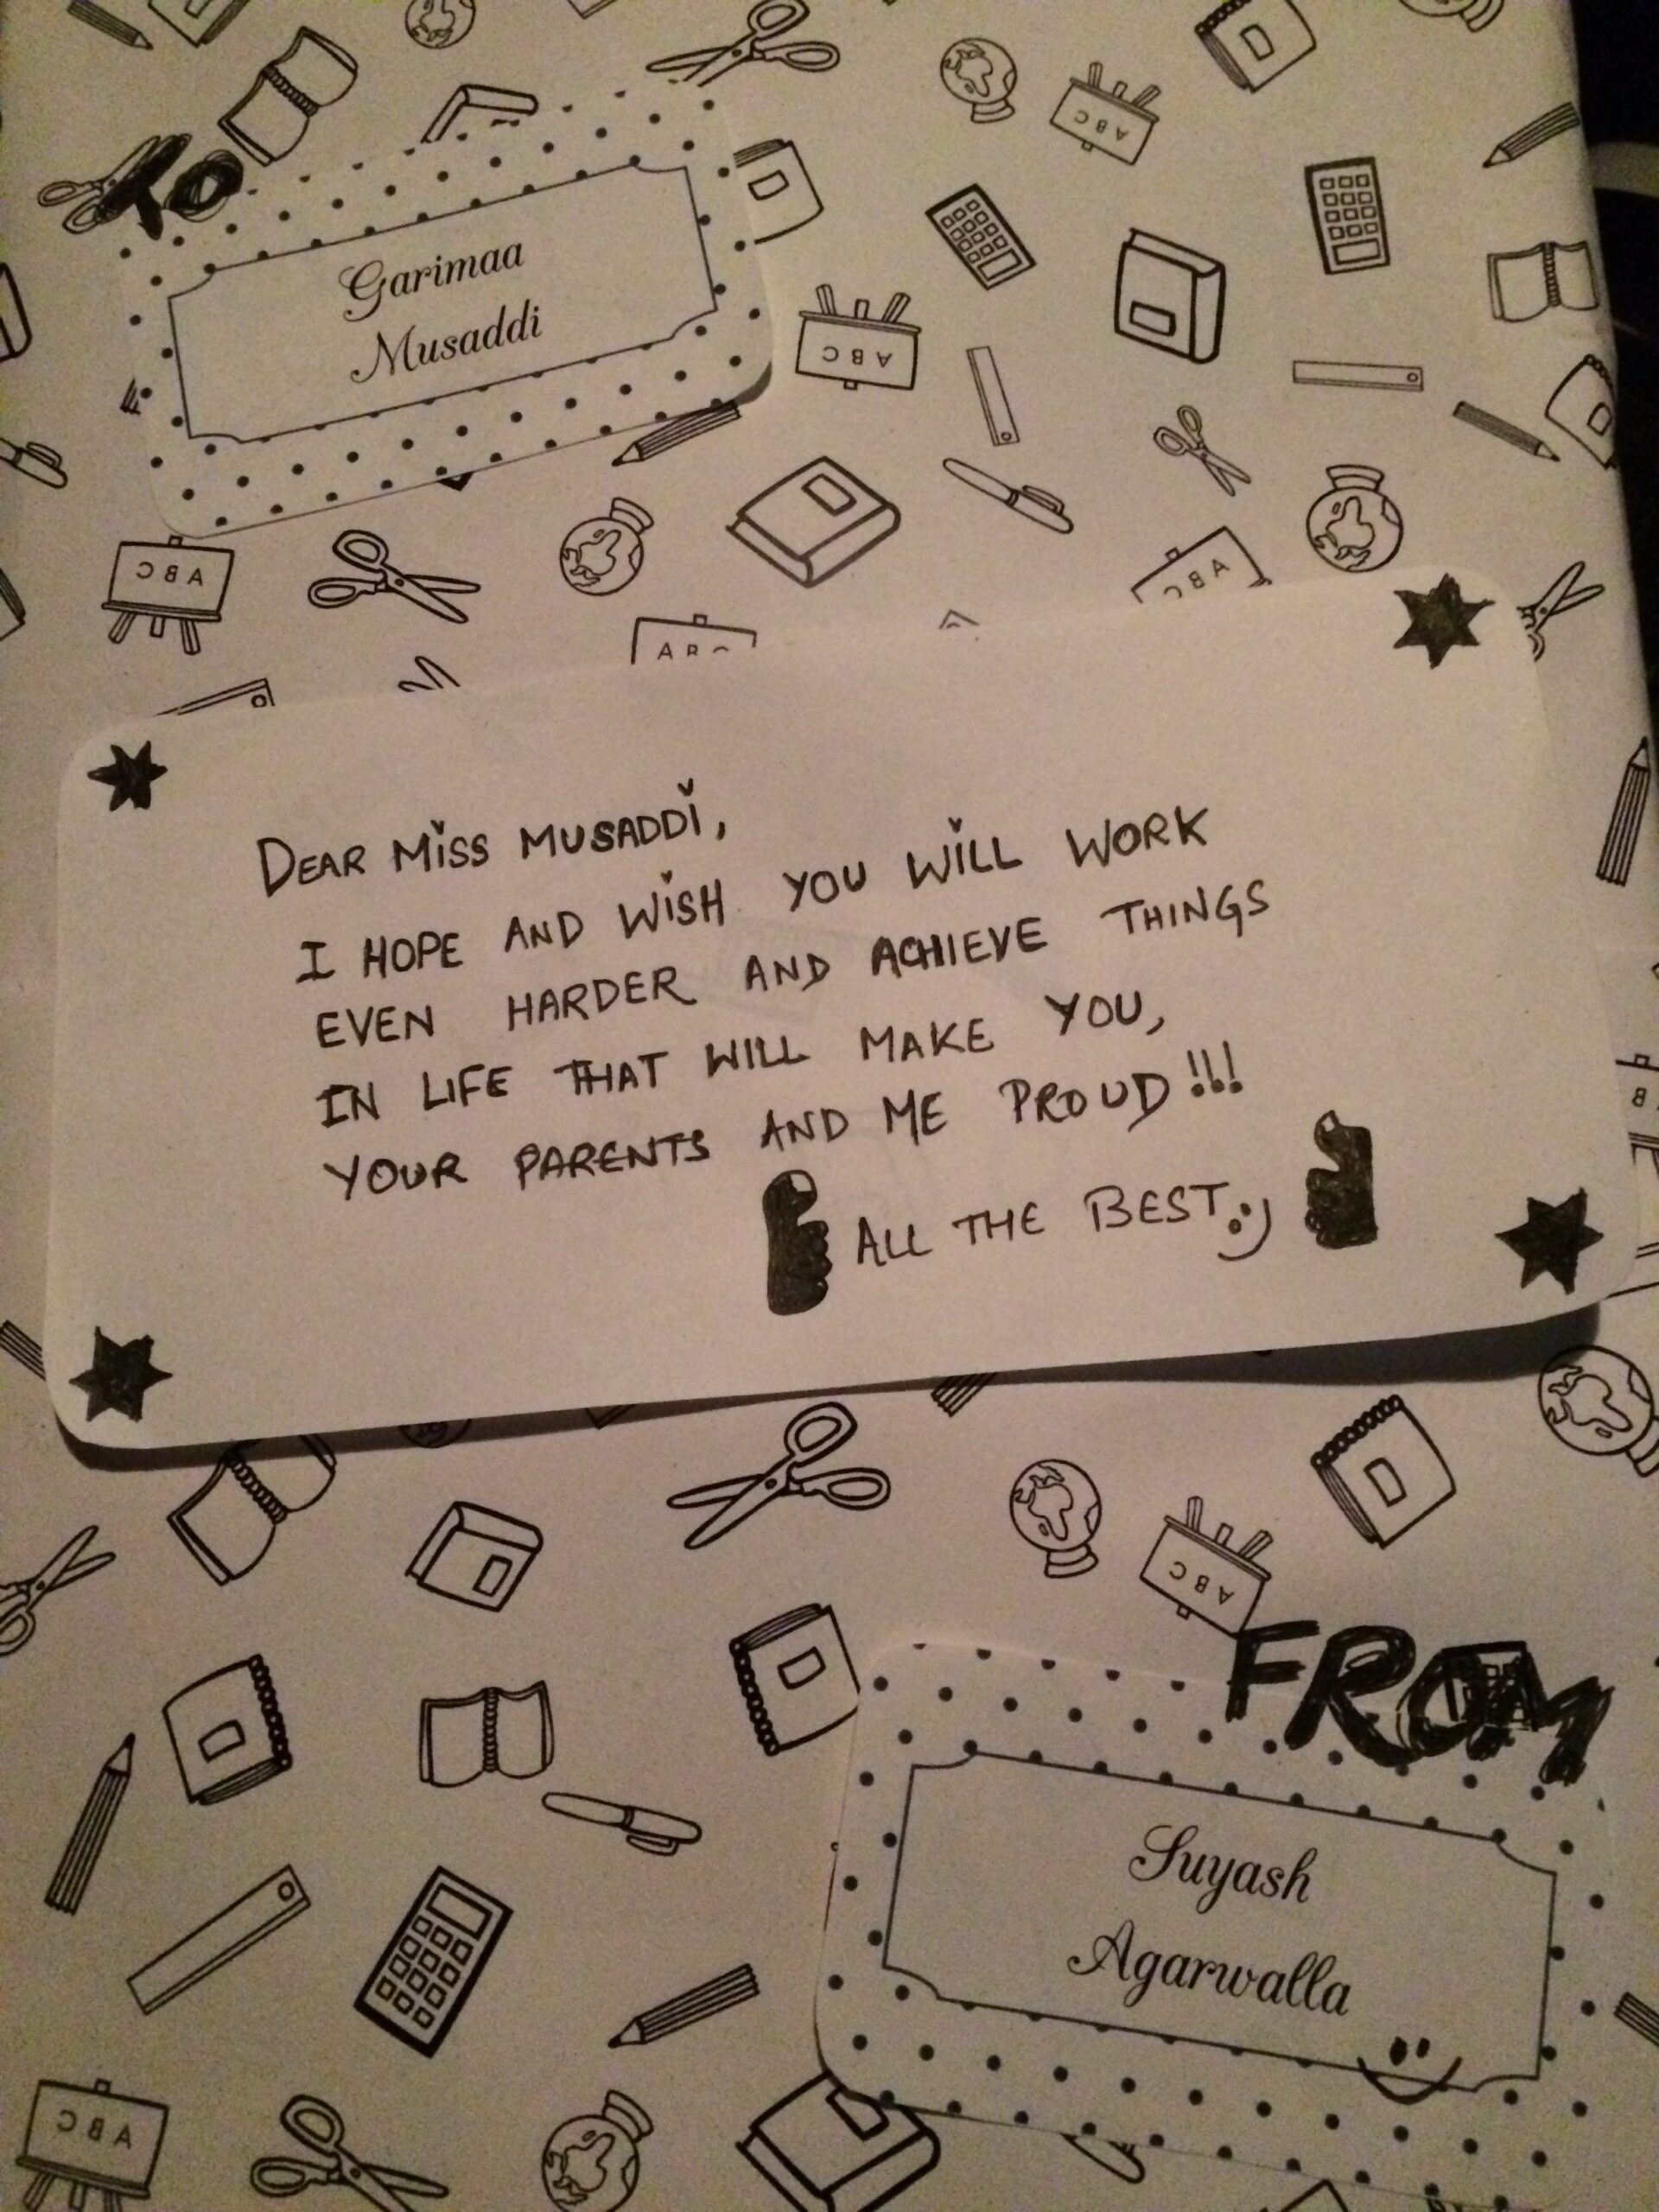 TO
Garimaa
Musaddi
ABC
ABC
ABC
ABC
ABC
DEAR MISS MUSADDI,
I HOPE AND WISH YOU WILL WORK
EVEN HARDER AND ACHIEVE THINGS
IN LIFE THAT WILL MAKE YOU,
YOUR PARENTS AND ME PROUD!!!
ALL THE BEST :)
ABC
FROM
Suyash
Agarwalla
ABC